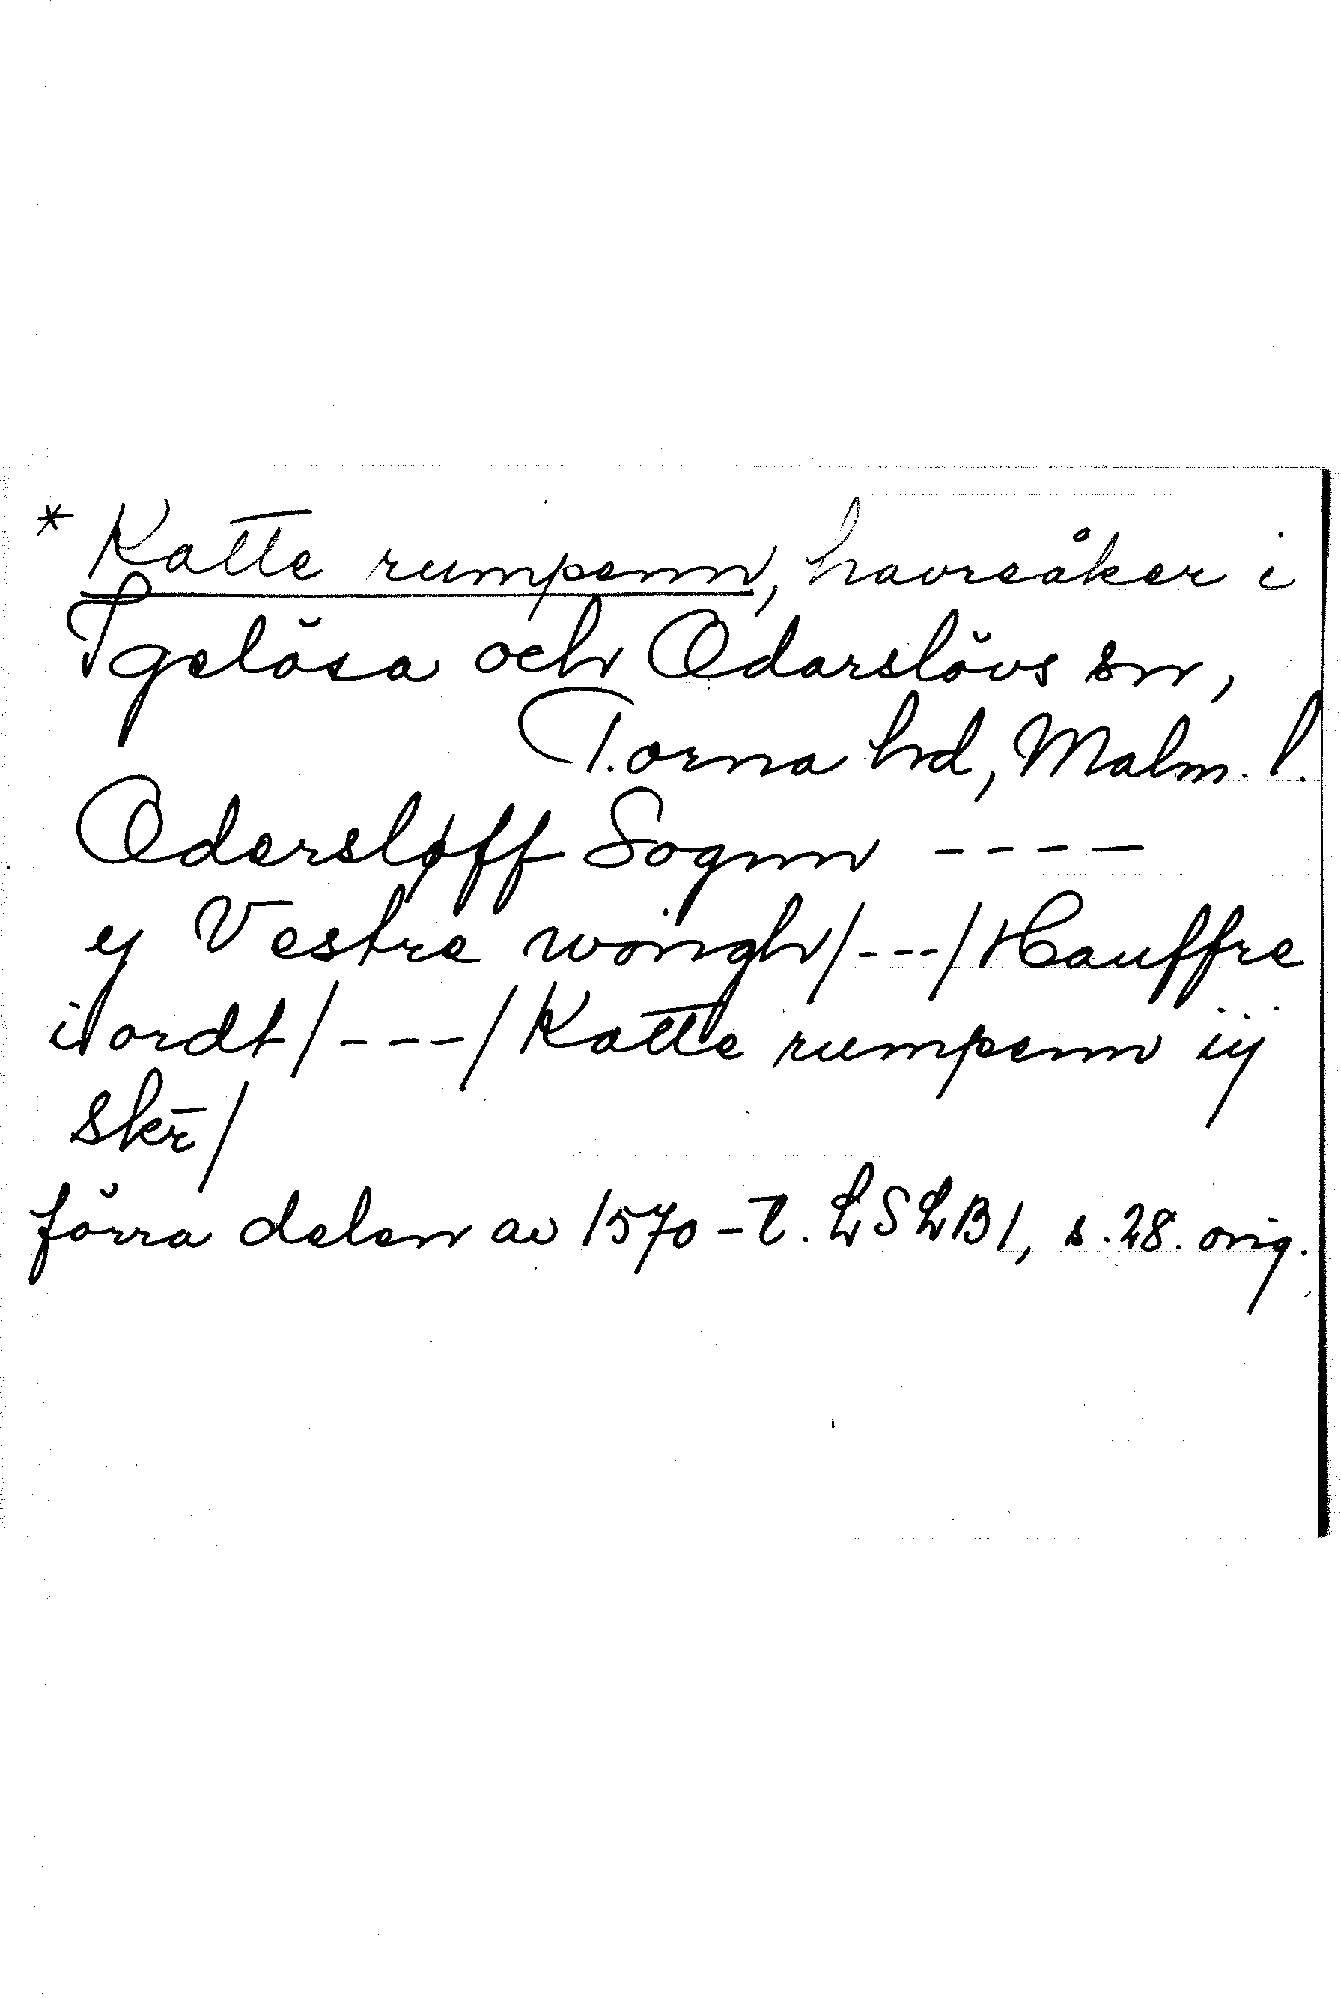 * Katte rumpenn, havreåker i
Igelösa och Odarslövs snr,
Torna hd, Malm. l.
Odersløff Sognn ----
ey Vestre wongh/---/Hauffre
iordt/---/Katte rumpenn iij
skr̄/
förra delen av 1570-t. LSLB1, s. 28. orig.